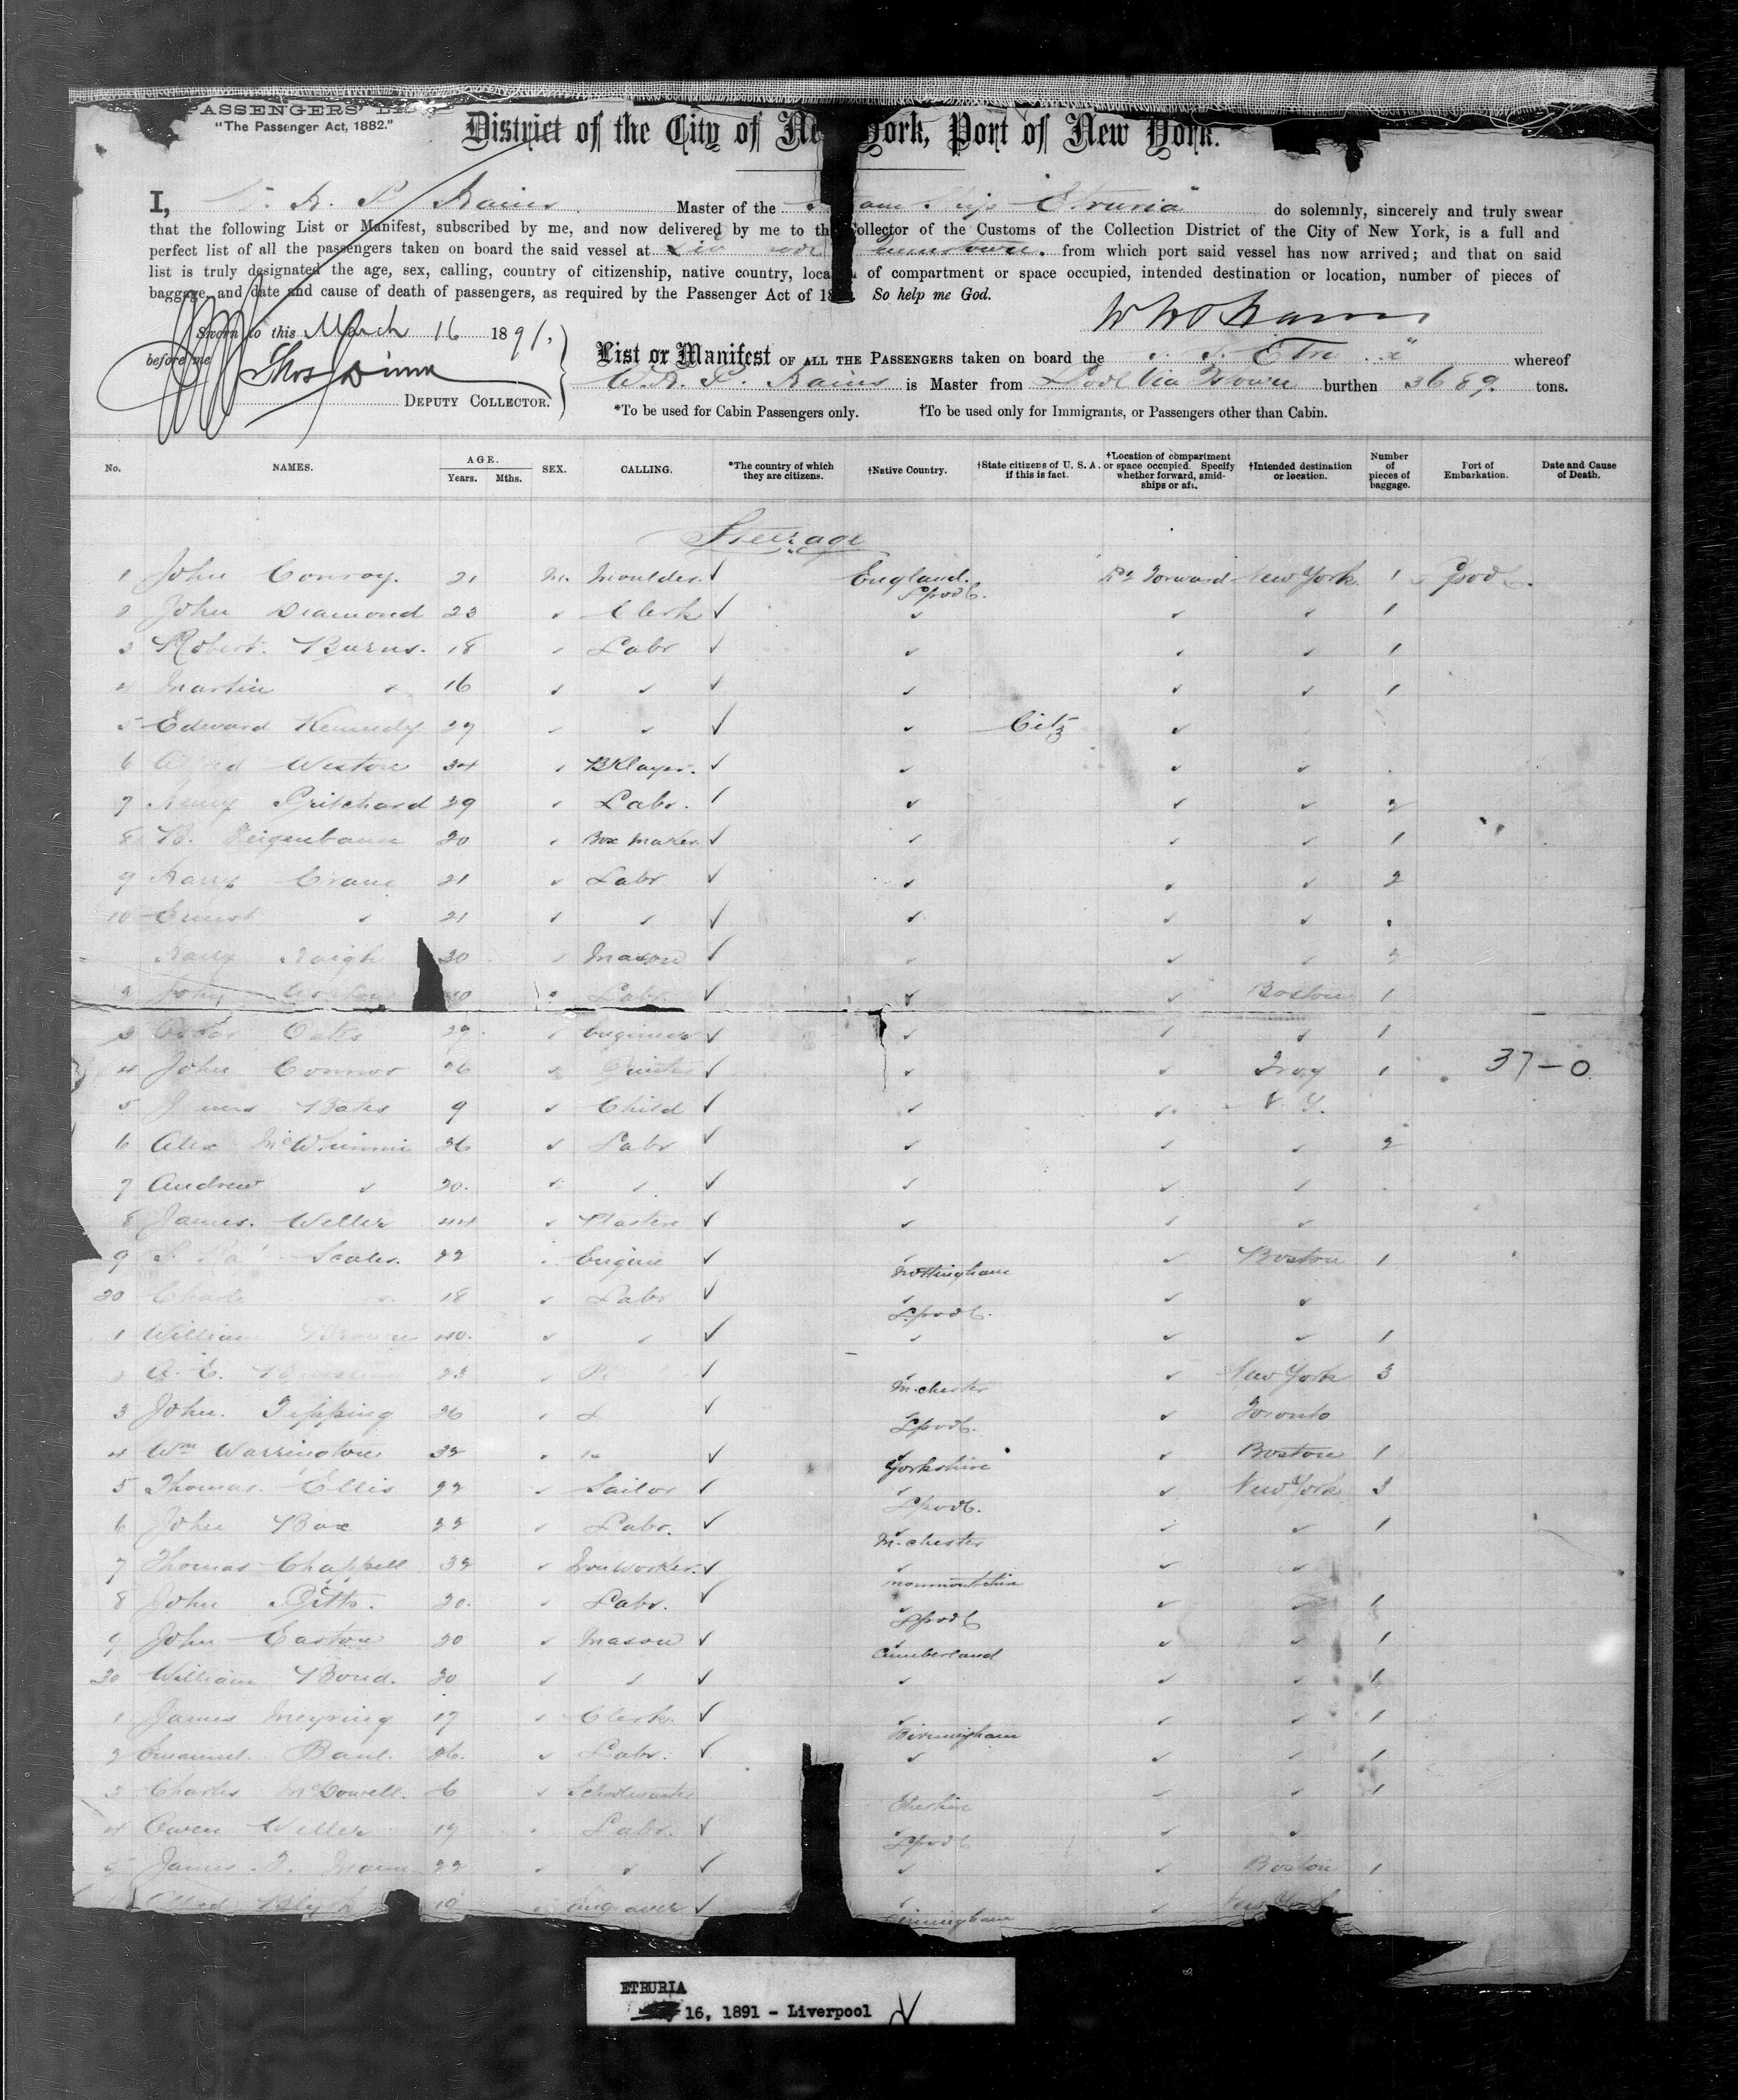 PASSENGERS' LIST
"The Passenger Act, 1882."
District of the City of New York, Port of New York.
I, W. H. P. Hains Master of the Steam Ship "Etruria" do solemnly, sincerely and truly swear
that the following List or Manifest, subscribed by me, and now delivered by me to the Collector of the Customs of the Collection District of the City of New York, is a full and
perfect list of all the passengers taken on board the said vessel at Queenstown. from which port said vessel has now arrived; and that on said
list is truly designated the age, sex, calling, country of citizenship, native country, location of compartment or space occupied, intended destination or location, number of pieces of
baggage, and date and cause of death of passengers, as required by the Passenger Act of 18 So help me God.
Sworn to this March 16 1891.
before me Thos Dinn
DEPUTY COLLECTOR.
W H P Hains
List or Manifest OF ALL THE PASSENGERS taken on board the S. S. Etru a" whereof
W. H. P. Hains is Master from Lpool Via Qtown burthen 3689. tons.
*To be used for Cabin Passengers only. †To be used only for Immigrants, or Passengers other than Cabin.
No. NAMES. AGE. Years. Mths. SEX. CALLING. *The country of which they are citizens. †Native Country. †State citizens of U. S. A. if this is fact. †Location of compartment or space occupied. Specify whether forward, amidships or aft. †Intended destination or location. Number of pieces of baggage. Port of Embarkation. Date and Cause of Death.
Steerage
1 John Conroy. 21 M. Moulder. ✓ England. Lpool. Forward New York. 1 Lpool.
2 John Diamond 23 ✓ Clerk ✓ ✓ ✓ ✓ 1
3 Robert. Burns. 18 ✓ Labr ✓ ✓ ✓ ✓ 1
4 Martin ✓ 16 ✓ ✓ ✓ ✓ ✓ ✓ 1
5 Edward Kennedy 29 ✓ ✓ ✓ ✓ Citz ✓
6 Alfred Weston 34 ✓ BKlayer. ✓ ✓ ✓ ✓
7 Henry Pritchard 29 ✓ Labr. ✓ ✓ ✓ ✓ 2
8 B. Feigenbaum 20 ✓ Box Maker. ✓ ✓ ✓ ✓ 1
9 Harry Crane 21 ✓ Labr ✓ ✓ ✓ ✓ 2
10 Ernest ✓ 21 ✓ ✓ ✓ ✓ ✓ ✓
Harry Haigh 30 ✓ Mason ✓ ✓ ✓ ✓ 2
2 John ✓ Labr ✓ ✓ ✓ Boston 1
3 Oates 29 ✓ Engineer ✓ ✓ ✓ ✓ 1
4 John Connor 26 ✓ ✓ ✓ ✓ Troy 1 37-0
5 James Bates 9 ✓ Child ✓ ✓ ✓ N. Y.
6 Alex McWhinnie 36 ✓ Labr ✓ ✓ ✓ ✓ 2
7 Andrew ✓ 20. ✓ ✓ ✓ ✓ ✓ ✓
8 James. Weller 44 ✓ Plasterer ✓ ✓ ✓ ✓
9 Scales. 22 ✓ Engine ✓ ✓ Nottingham ✓ Boston 1
20 Charles ✓ 18 ✓ Labr ✓ Lpool. ✓ ✓
1 William Brown 40. ✓ ✓ ✓ ✓ ✓ ✓ 1
A. E. 23 ✓ ✓ ✓ M.chester ✓ New York 3
3 John. Tipping 26 ✓ ✓ ✓ Lpool. ✓ Toronto
4 Wm Warrington 32 ✓ ✓ Yorkshire ✓ Boston 1
5 Thomas. Ellis 22 ✓ Sailor ✓ ✓ Lpool. ✓ New York 3
6 John Box 22 ✓ Labr. ✓ ✓ M.chester ✓ ✓ 1
7 Thomas Chappell 32 ✓ Ironworker. ✓ ✓ Monmouthshire ✓ ✓
8 John Pitts. 20. ✓ Labr. ✓ ✓ Lpool ✓ ✓ 1
9 John Easton 20 ✓ Mason ✓ ✓ Cumberland ✓ ✓ 1
30 William Bond. 20 ✓ ✓ ✓ ✓ ✓ ✓ 1
1 James Meyring 17 ✓ Clerk. ✓ ✓ Birmingham ✓ ✓ 1
2 Emanuel. 26. ✓ Labr. ✓ ✓ ✓ ✓ 1
3 Charles McDowell. ✓ Schoolmaster Cheshire ✓ ✓ 1
4 Owen Weller 19 ✓ Labr. ✓ ✓ Lpool ✓ ✓
5 James. Mann 22 ✓ ✓ ✓ ✓ ✓ Boston 1
Alfred Blyth 19 ✓ Engraver ✓ ✓ Birmingham ✓ New York
ETRURIA
16, 1891 - Liverpool ✓